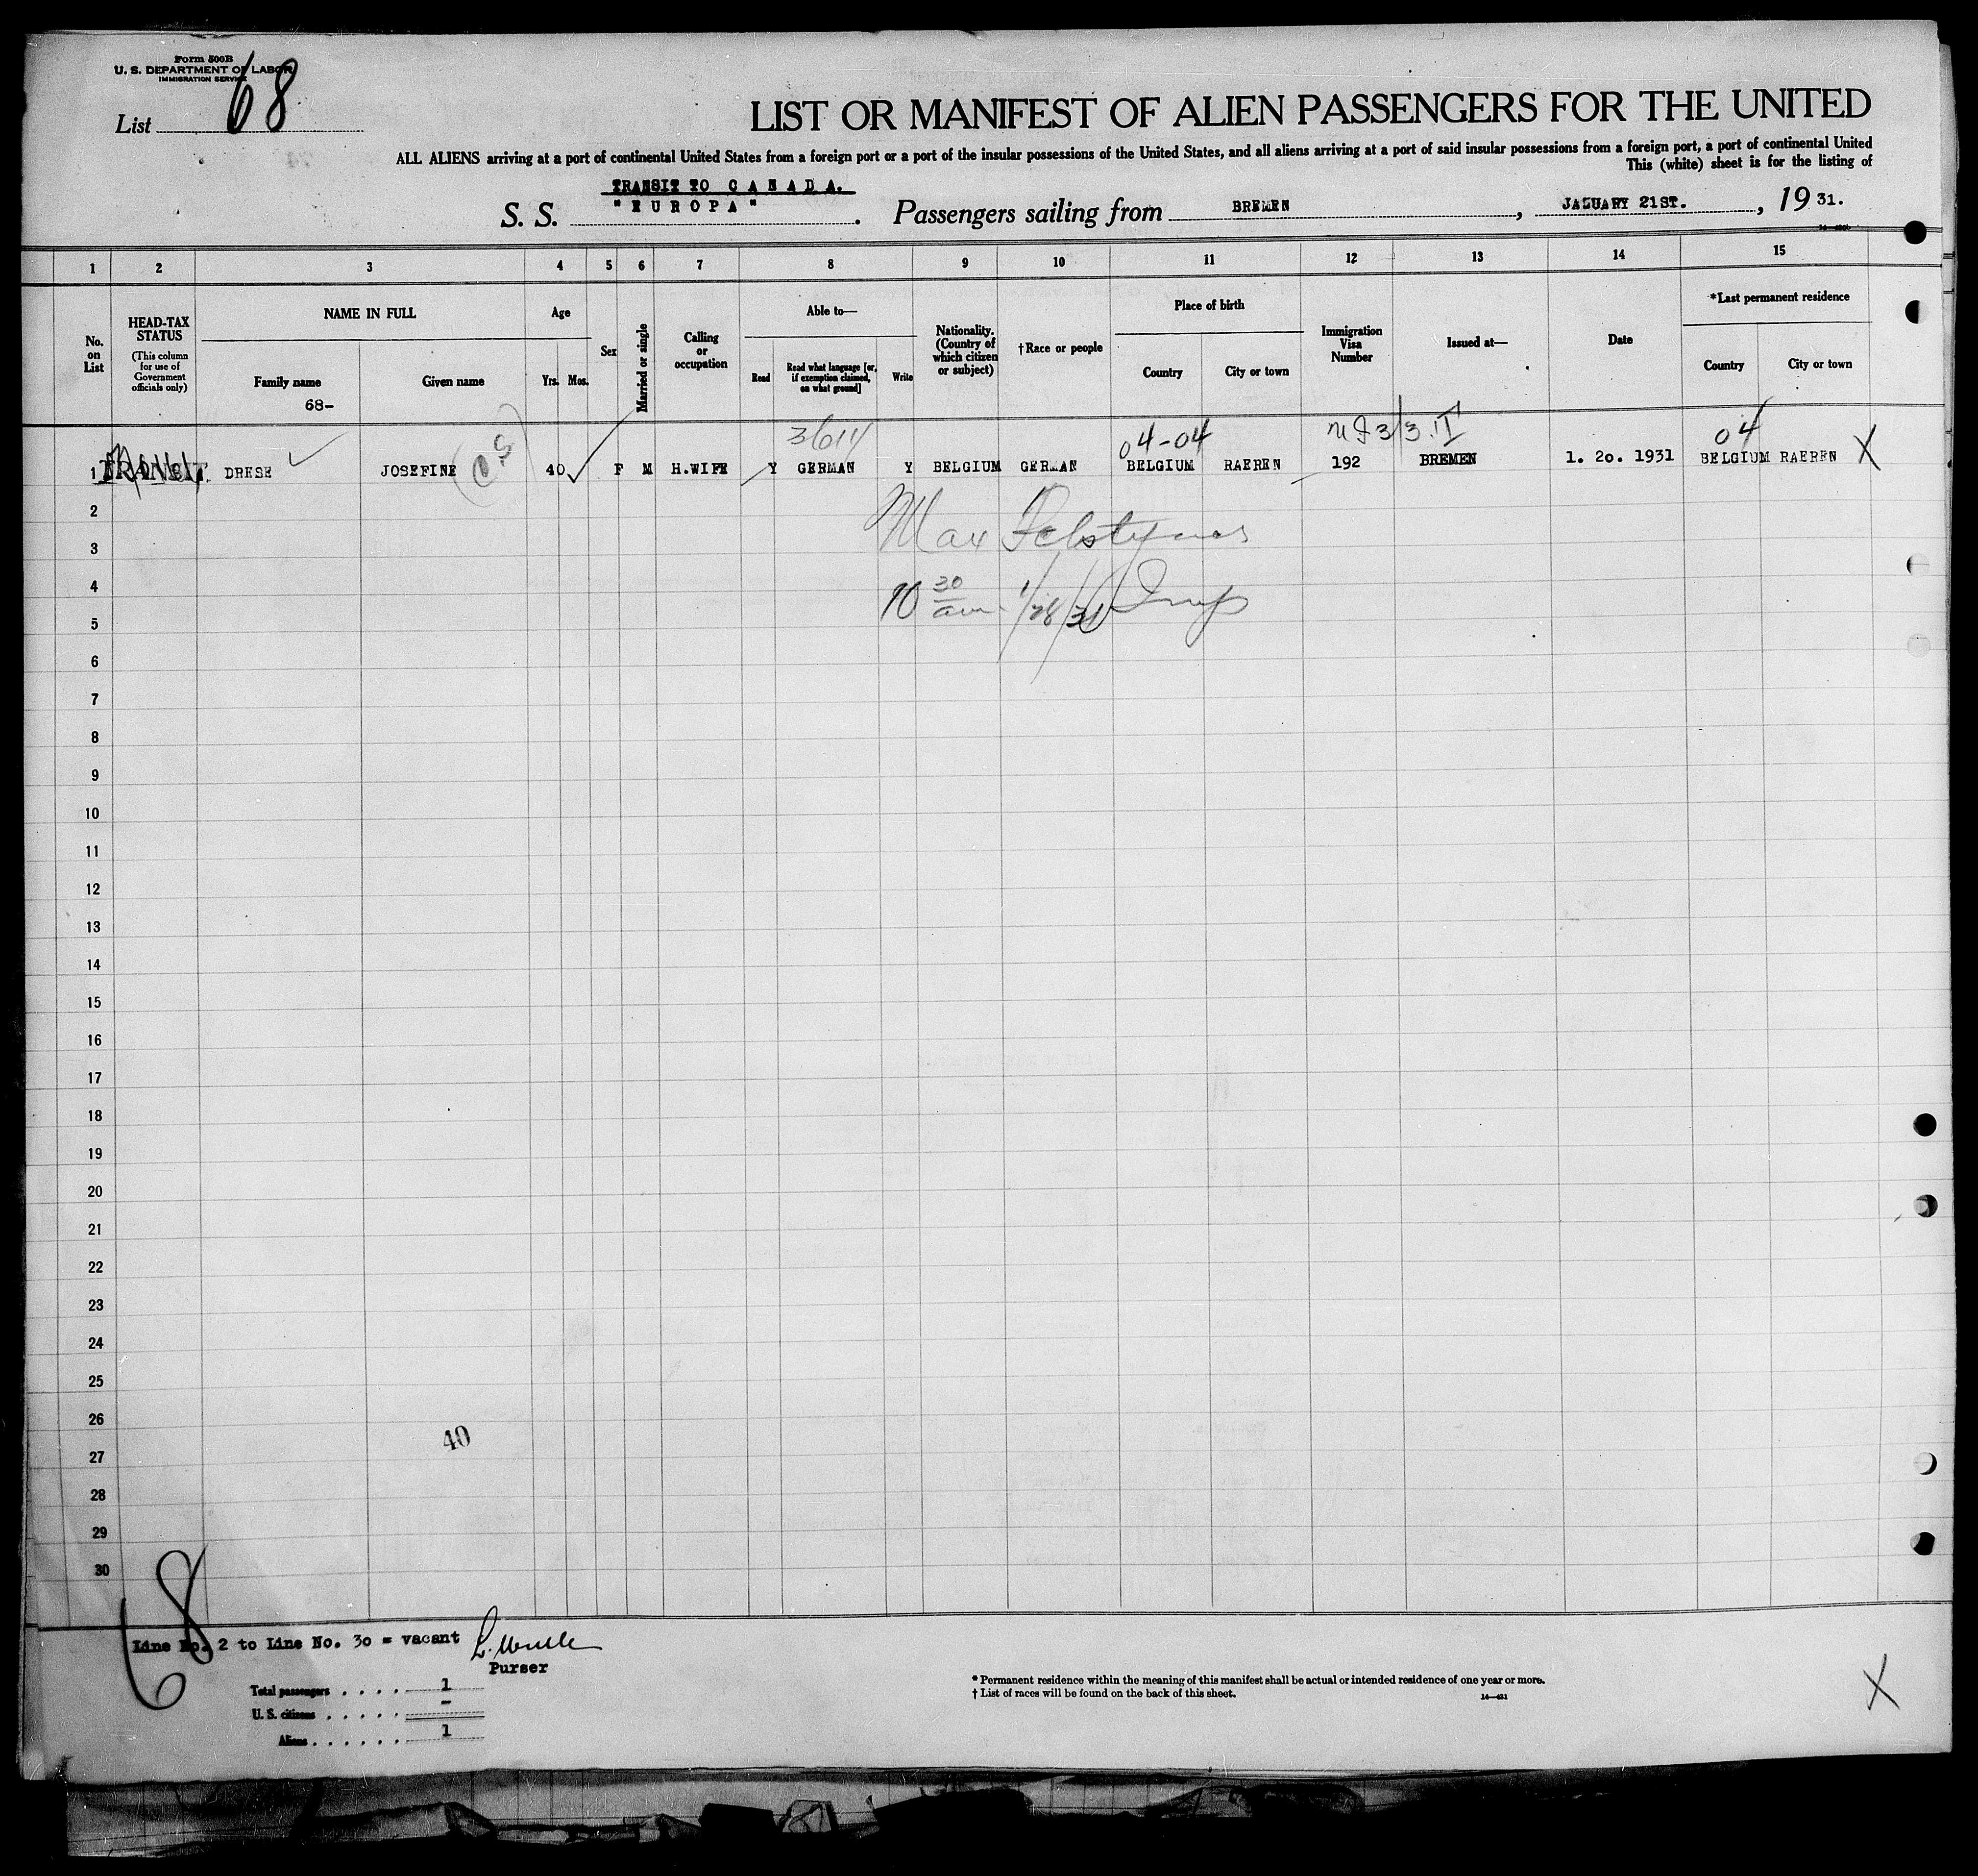 Form 500B
U. S. DEPARTMENT OF LABOR
IMMIGRATION SERVICE
List 68
LIST OR MANIFEST OF ALIEN PASSENGERS FOR THE UNITED
ALL ALIENS arriving at a port of continental United States from a foreign port or a port of the insular possessions of the United States, and all aliens arriving at a port of said insular possessions from a foreign port, a port of continental United
This (white) sheet is for the listing of
TRANSIT TO CANADA.
S. S. "EUROPA". Passengers sailing from BREMEN, JANUARY 21ST., 1931.
1 2 3 4 5 6 7 8 9 10 11 12 13 14 15
No. on List
HEAD-TAX STATUS
(This column for use of Government officials only)
NAME IN FULL
Family name
Given name
68-
Age
Yrs. Mos.
Sex
Married or single
Calling or occupation
Able to—
Read
Read what language [or, if exemption claimed, on what ground]
Write
Nationality. (Country of which citizen or subject)
†Race or people
Place of birth
Country
City or town
Immigration Visa Number
Issued at—
Date
*Last permanent residence
Country
City or town
04-04
04
1 TRANSIT. DRESE JOSEFINE 40 F M H.WIFE Y GERMAN Y BELGIUM GERMAN BELGIUM RAEREN 192 BREMEN 1. 20. 1931 BELGIUM RAEREN X
2
Max
3
4
10 30 am 1/28/31 Insp
5
6
7
8
9
10
11
12
13
14
15
16
17
18
19
20
21
22
23
24
25
26
40
27
28
29
30
68
Line No. 2 to Line No. 30 = vacant
Purser
Total passengers . . . . 1
U. S. citizens . . . . . -
Aliens . . . . . . 1
* Permanent residence within the meaning of this manifest shall be actual or intended residence of one year or more.
† List of races will be found on the back of this sheet.
X